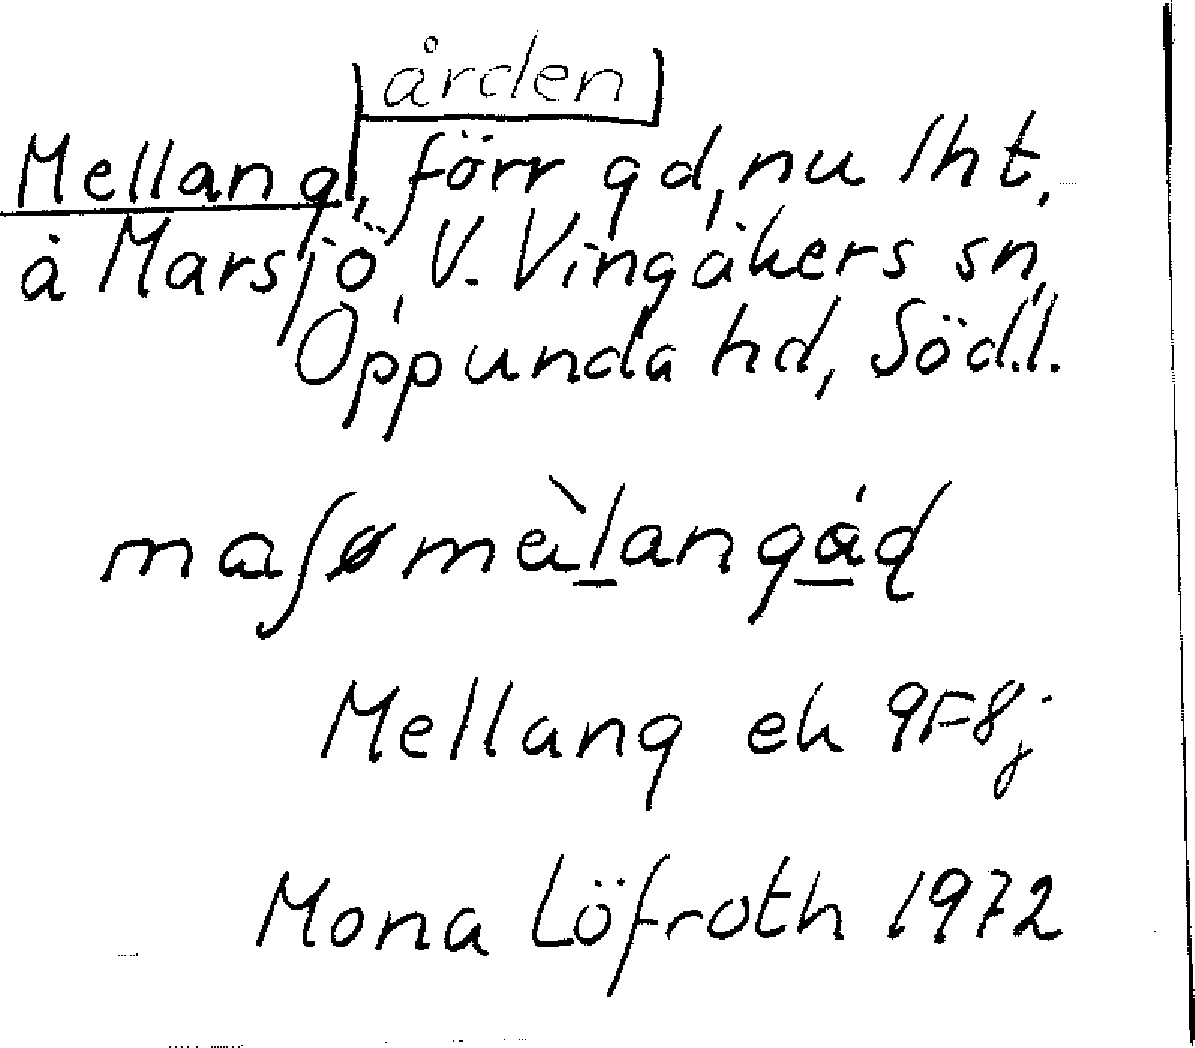 ården
Mellang, förr gd, nu lht.
å Marsjö, V. Vingåkers sn,
Oppunda hd, Södl.
Mellang ek 9F8j
Mona Löfroth 1972